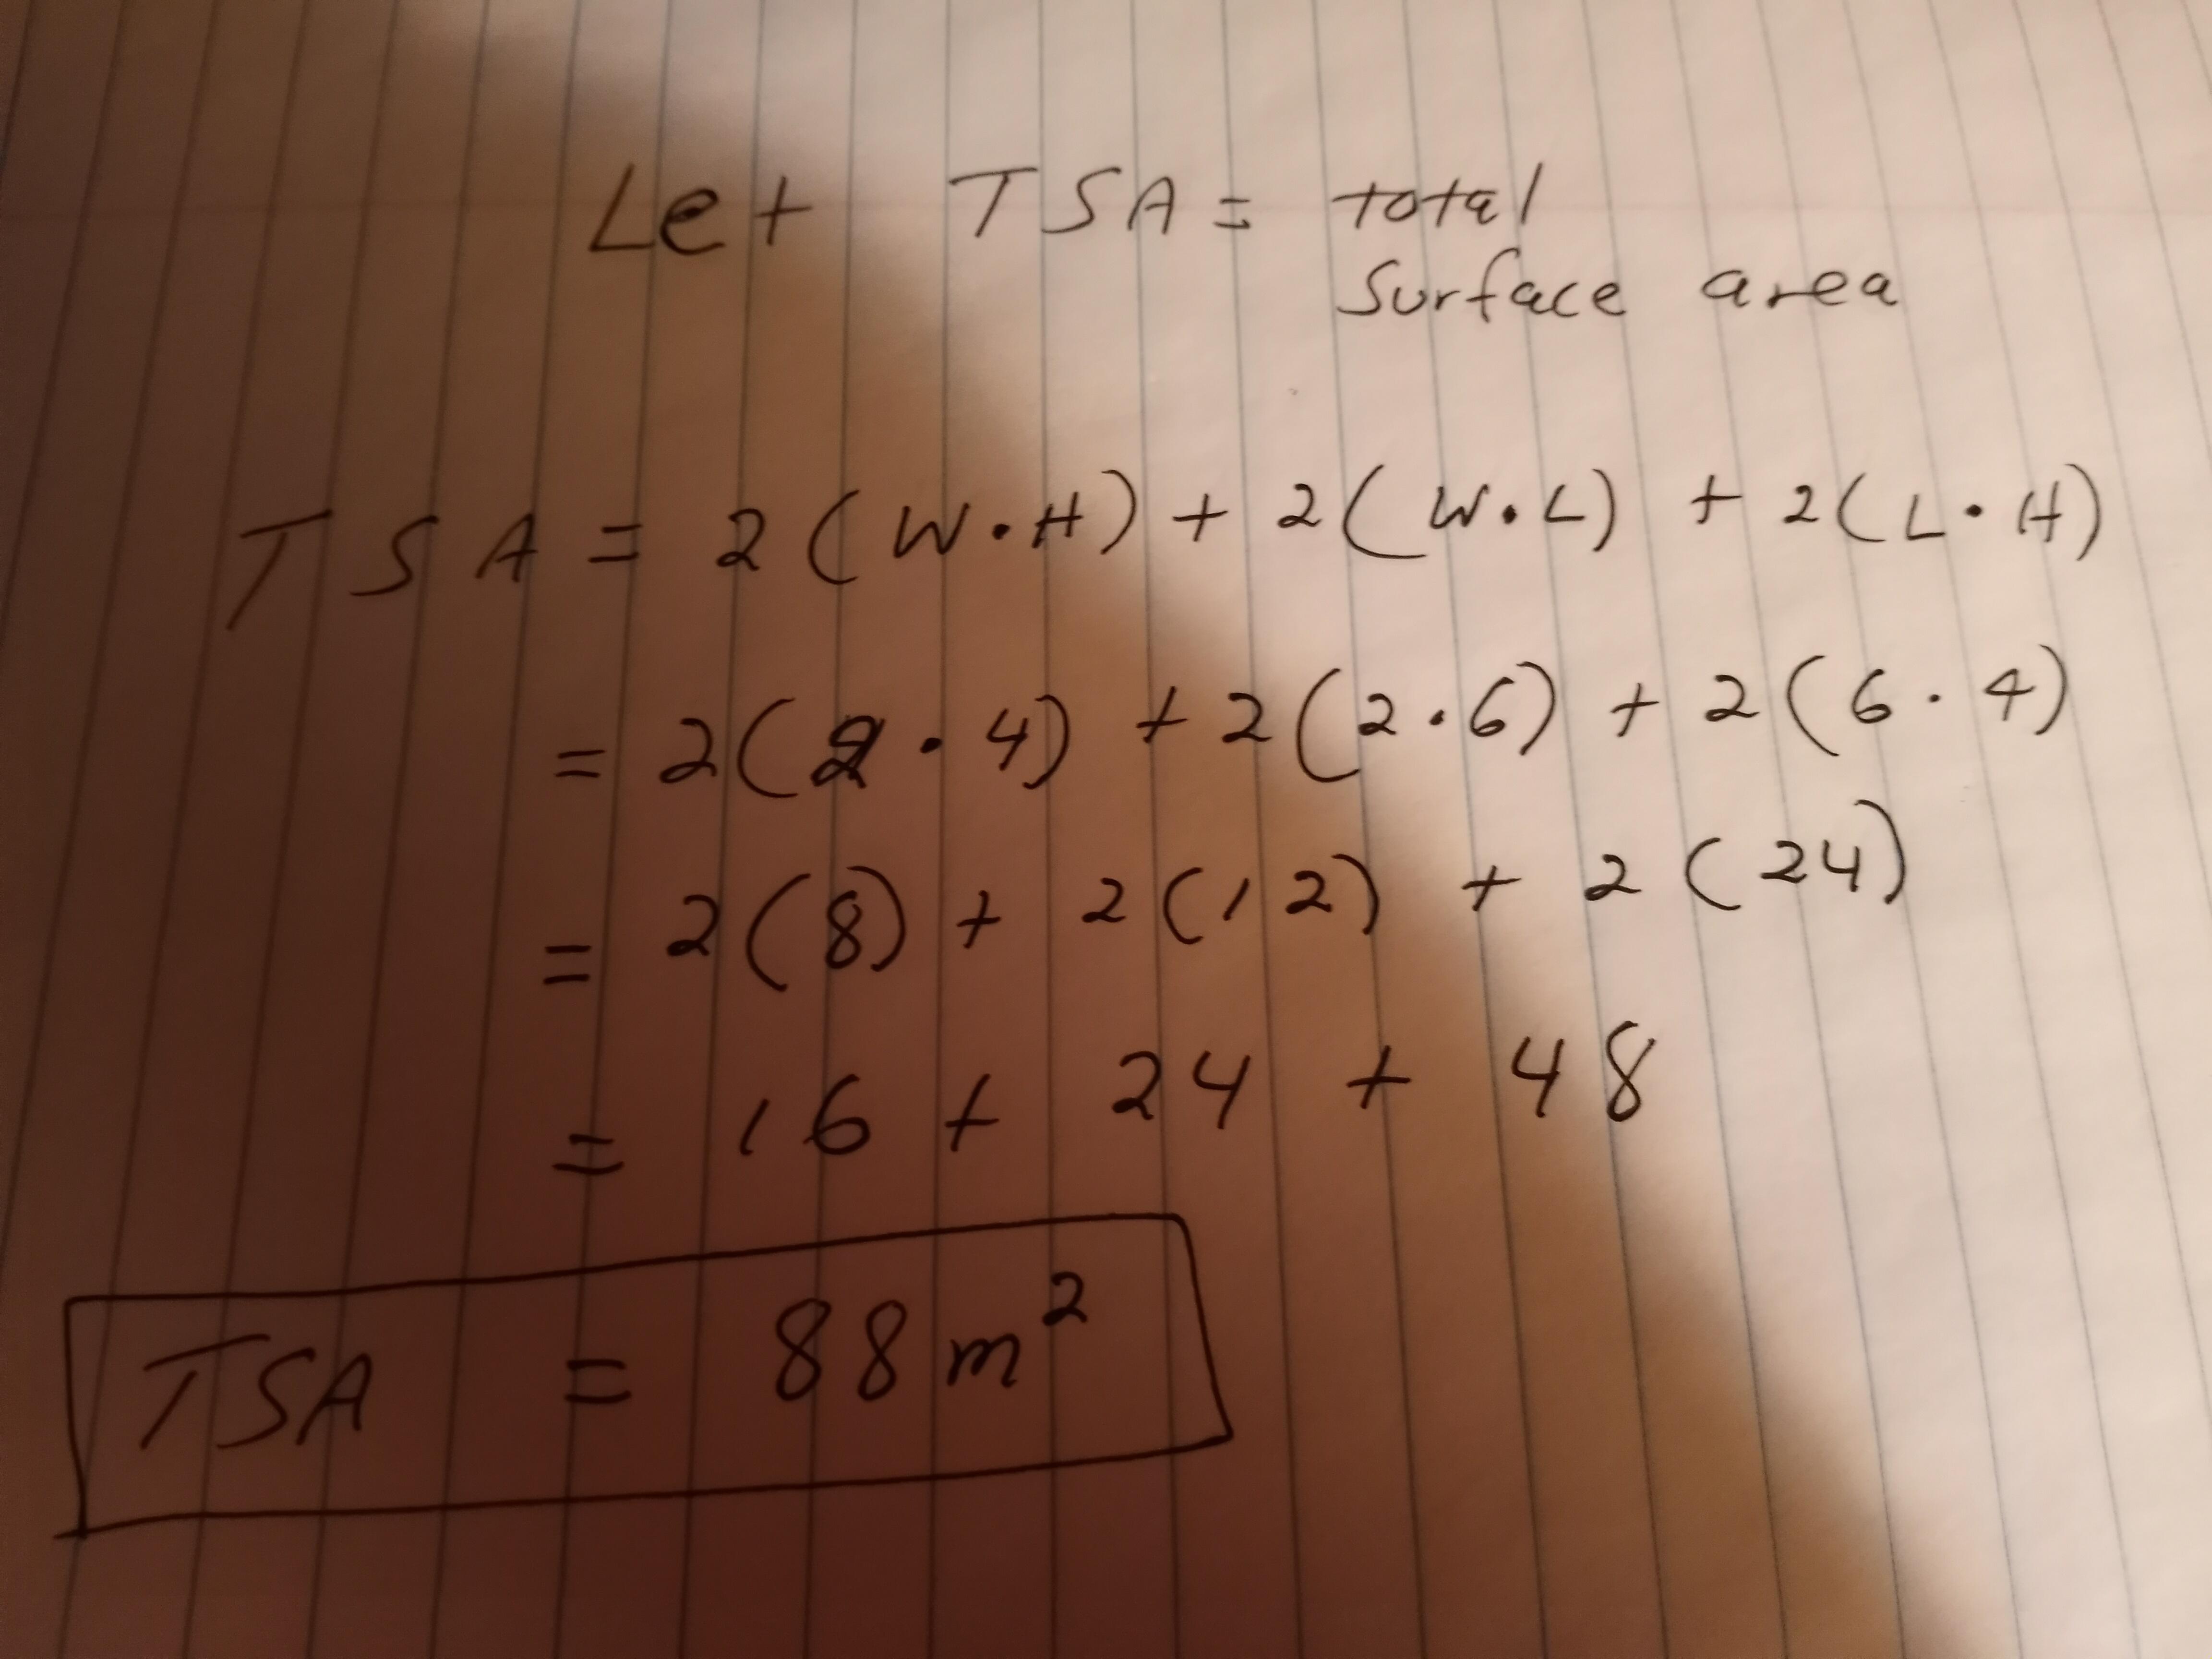 Let TSA = total
surface area
TSA = 2(W•H) + 2(W•L) + 2(L•H)
= 2(2•4) + 2(2•6) + 2(6•4)
= 2(8) + 2(12) + 2(24)
= 16 + 24 + 48
TSA = 88m²